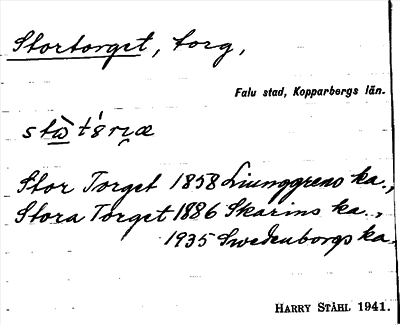 Stortorget, torg,
Falu stad, Kopparbergs län.
Stor Torget 1858 Ljunggrens ka.,
Stora Torget 1886 Skarins ka.,
1935 Swedenborgs ka.
HARRY STÅHL 1941.